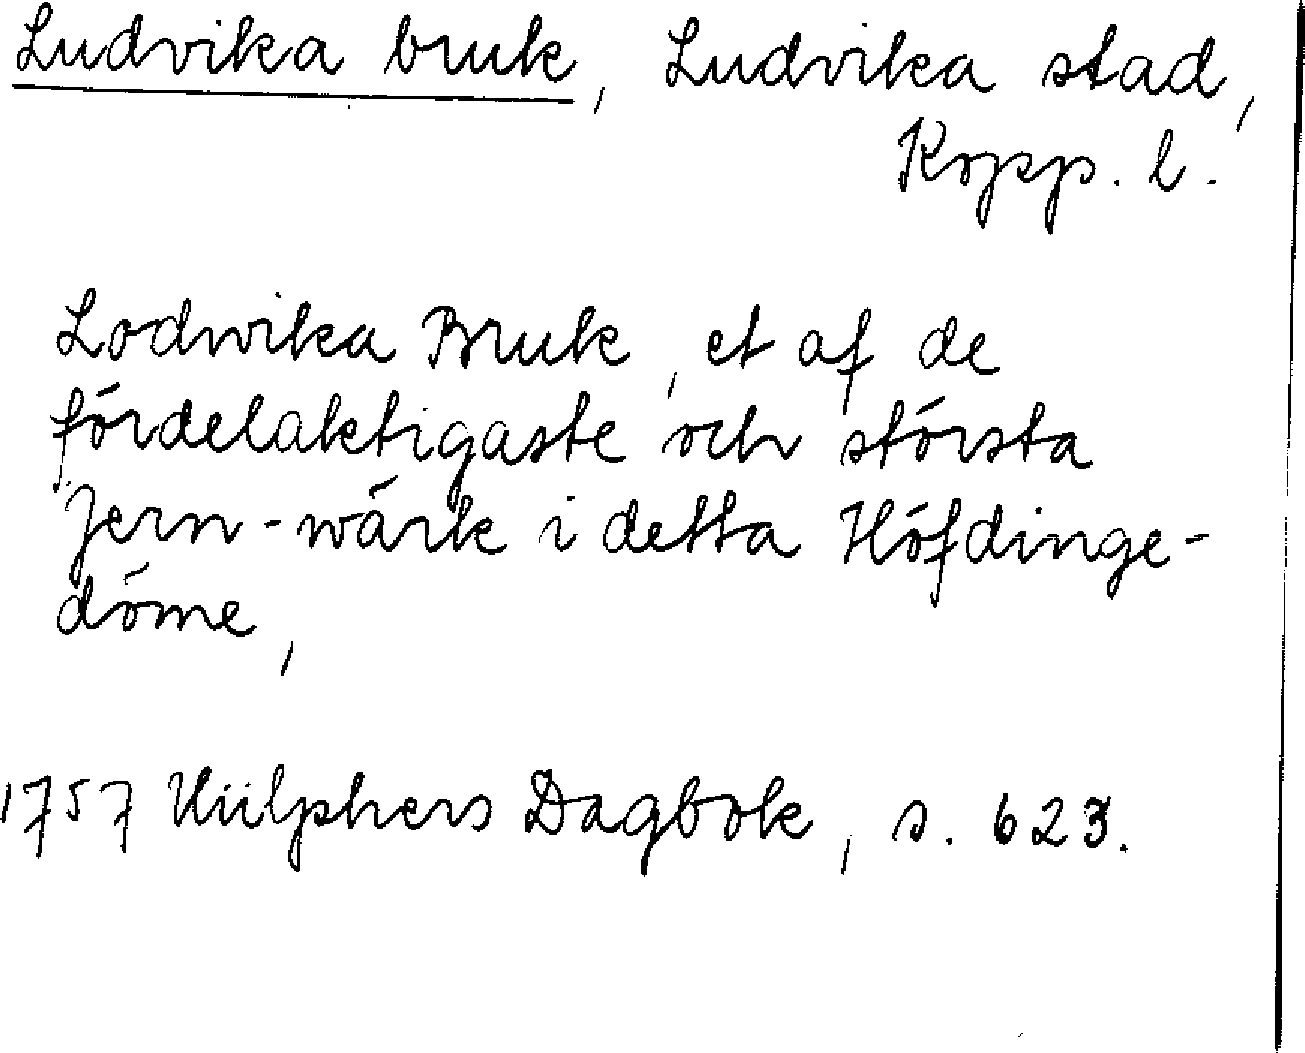 Ludvika bruk, Ludvika stad,
Kopp. l.
Lodwika Bruk, et af de
fördelaktigaste och största
Jern-wärk i detta Höfdinge-
döme,
1757 Hülphers Dagbok, s. 623.